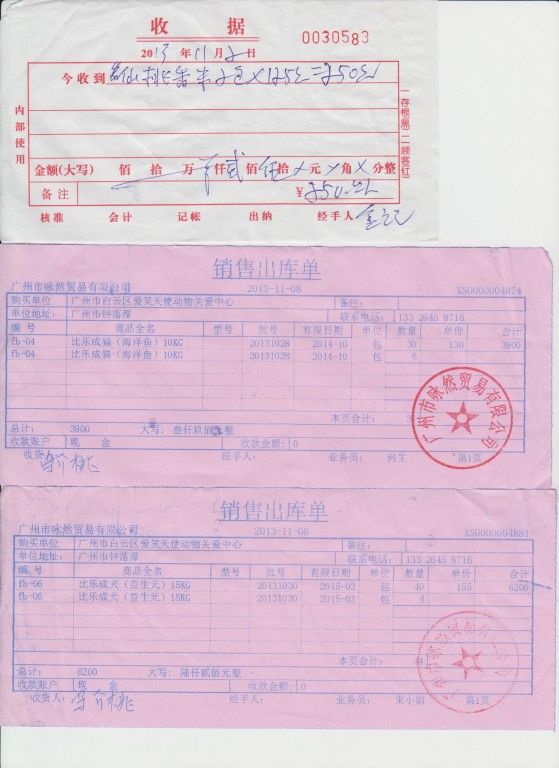 收 据
0030583
2013 年 11 月 2 日
今 收 到
内部使用
一存根(黑) 二顾客(红)
金额(大写) 佰 拾 万 仟 贰 佰 伍 拾 元 角 分整
备 注
¥250.
核准 会计 记帐 出纳 经手人
销售出库单
广州市咏然贸易有限公司 2013-11-08 XS0000004874
购买单位 广州市白云区爱笑天使动物关爱中心 备注:
单位地址: 广州市钟落潭 联系电话: 133 2645 8716
编 号 商品全名 型号 批号 有限日期 单位 数量 单价 合计
fb-04 比乐成猫(海洋鱼)10KG 20131028 2014-10 包 30 130 3900
fb-04 比乐成猫(海洋鱼)10KG 20131028 2014-10 包 6
本页合计:
总计: 3900 大写: 叁仟玖佰元整
收款账户 现 金 收款金额: 0
收货人: 经手人: 业务员: 何生 第1页
广州市咏然贸易有限公司
销售出库单
广州市咏然贸易有限公司 2013-11-08 XS0000004881
购买单位 广州市白云区爱笑天使动物关爱中心 备注:
单位地址: 广州市钟落潭 联系电话: 133 2645 8716
编 号 商品全名 型号 批号 有限日期 单位 数量 单价 合计
fb-06 比乐成犬(益生元)15KG 20131030 2015-03 包 40 155 6200
fb-06 比乐成犬(益生元)15KG 20131030 2015-03 包 4
本页合计:
总计: 6200 大写: 陆仟贰佰元整
收款账户 现 金 收款金额: 0
收货人: 经手人: 业务员: 朱小姐 第1页
广州市咏然贸易有限公司